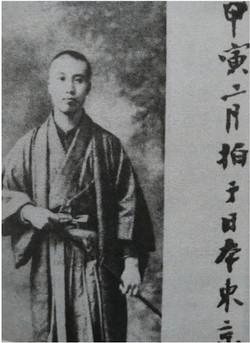 甲寅二月拍于日本東京